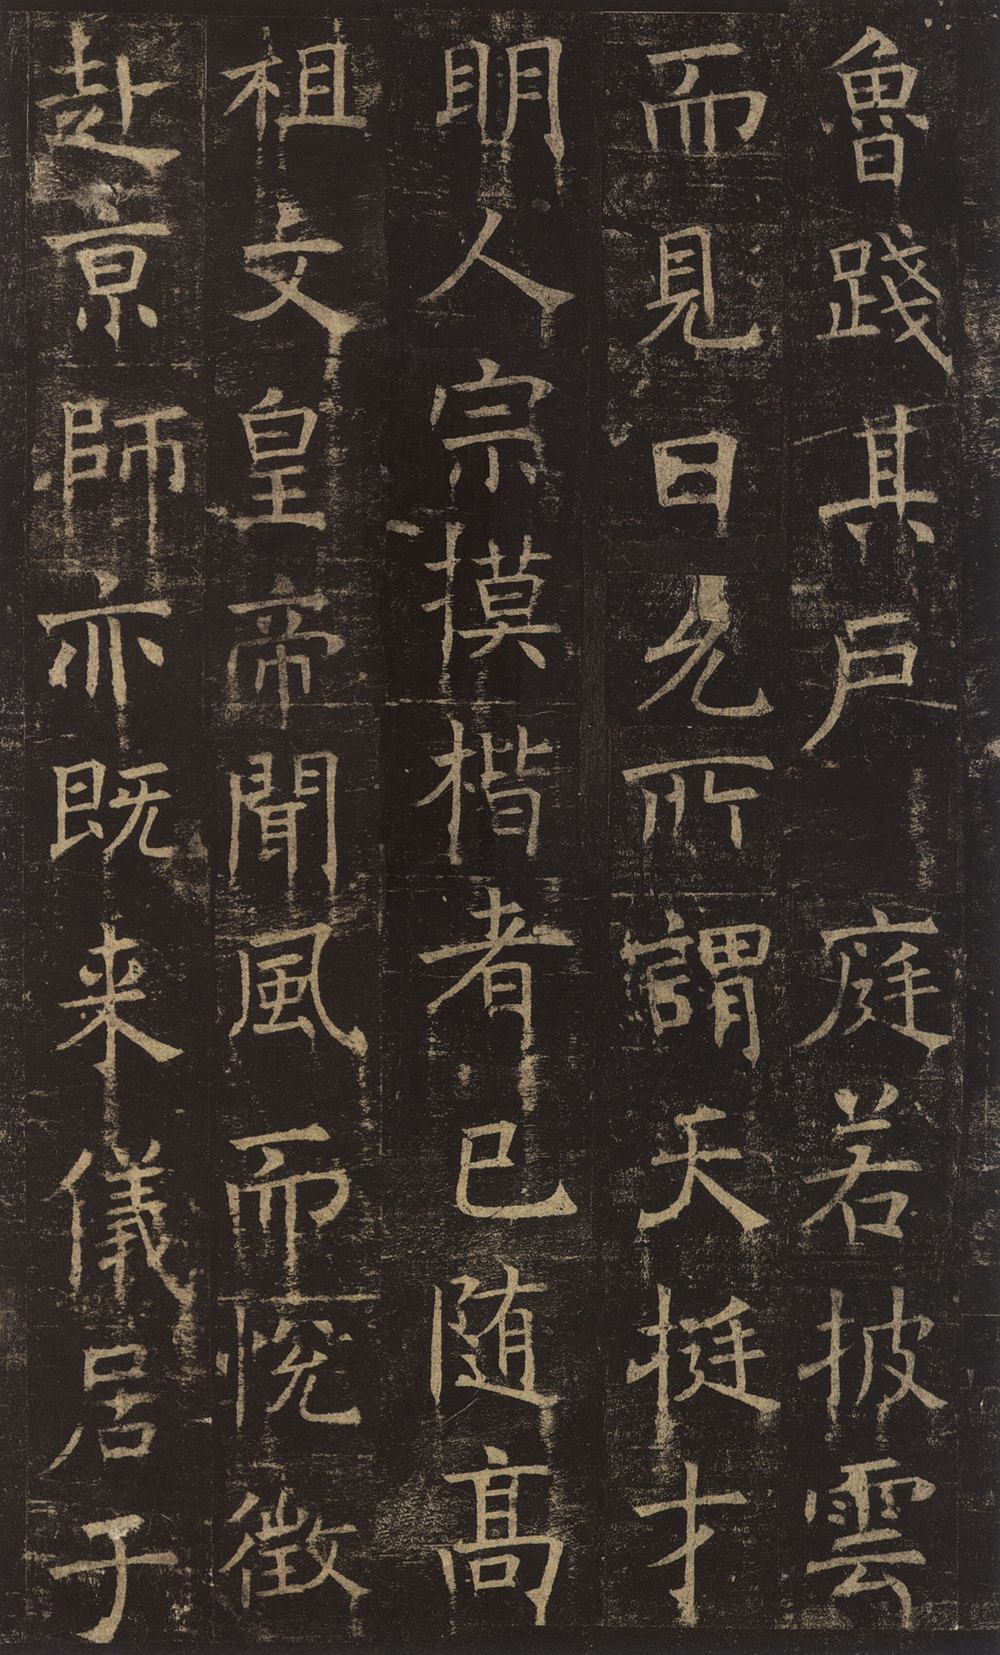 魯踐其戶庭若披雲
而見日先所謂天挺才
明人宗摸楷者已随高
祖文皇帝聞風而悅徵
赴京師亦既来儀居于